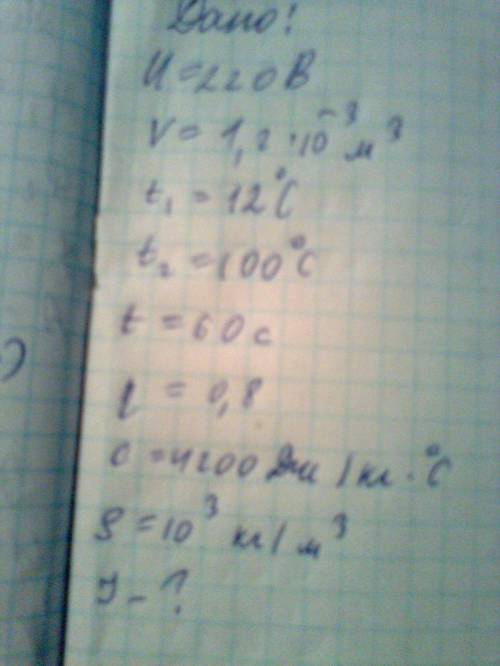 Дано!
U=220В
V=1,2·10⁻³ м³
t₁=12°C
t₂=100°C
t=60с
η=0,8
C=4200 Дж/кг·°C
ρ=10³ кг/м³
I-?